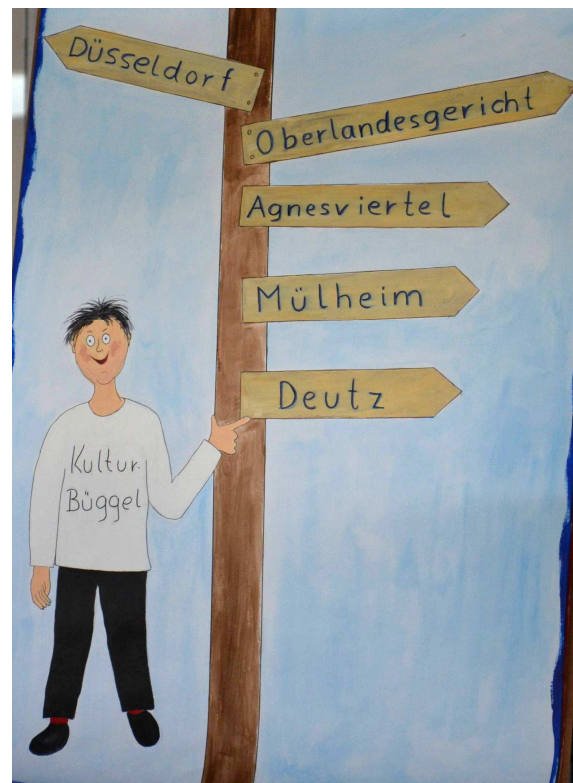 Düsseldorf
Oberlandesgericht
Agnesviertel
Mülheim
Deutz
Kultur-
Büggel